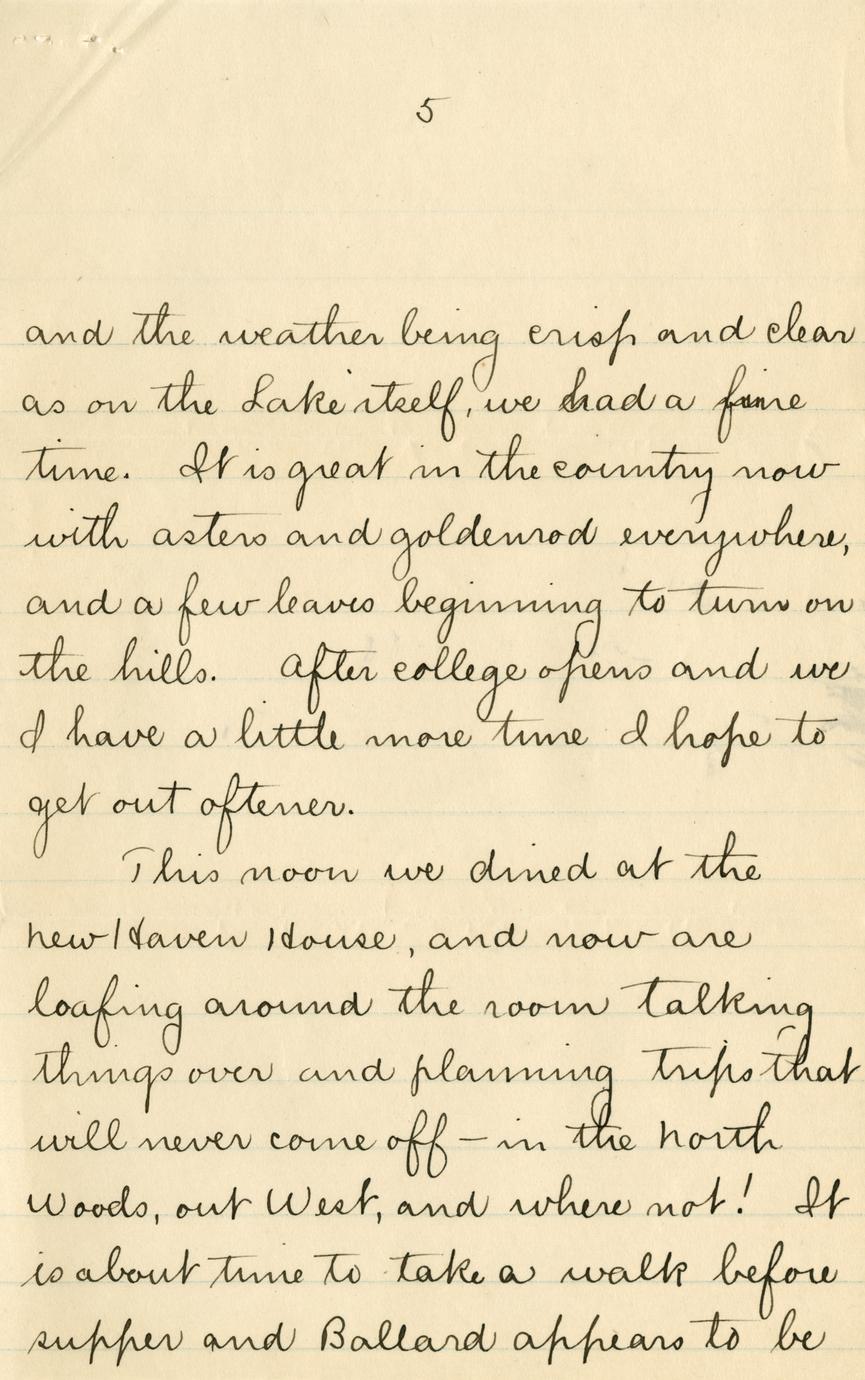 5
and the weather being crisp and clear
as on the Lake itself, we had a fine
time. It is great in the country now
with asters and goldenrod everywhere,
and a few leaves beginning to turn on
the hills. After college opens and we
I have a little more time I hope to
get out oftener.
This noon we dined at the
New Haven House, and now are
loafing around the room talking
things over and planning trips that
will never come off – in the North
Woods, out West, and where not! It
is about time to take a walk before
supper and Ballard appears to be